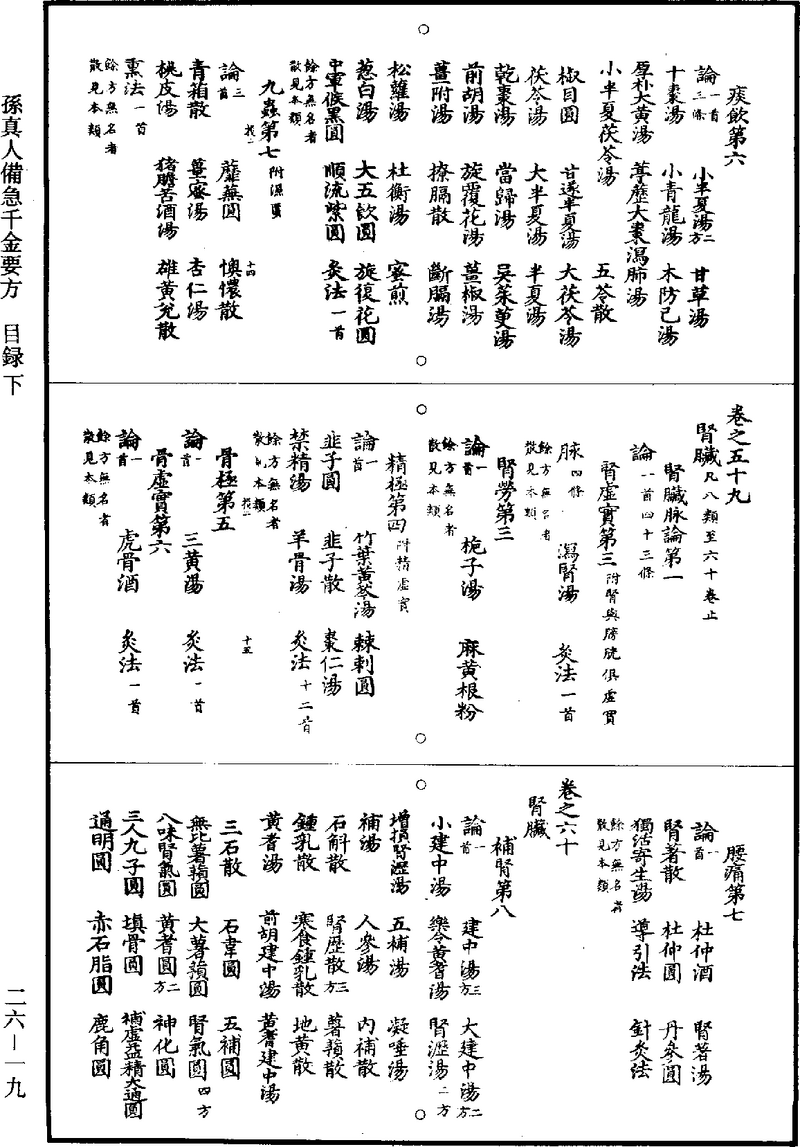 痰飲第六
論一首三條 小半夏湯二方 甘草湯
十棗湯 小青龍湯 木防己湯
厚朴大黃湯 葶歷大棗瀉肺湯
小半夏茯苓湯 五苓散
椒目圓 甘遂半夏湯 大茯苓湯
茯苓湯 大半夏湯 半夏湯
乾棗湯 當歸湯 吳茱萸湯
前胡湯 旋覆花湯 薑椒湯
薑附湯 撩膈散 斷膈湯
松蘿湯 杜衡湯 蜜煎
葱白湯 大五飲圓 旋復花圓
中軍候黑圓 順流紫圓 灸法一首
餘方無名者散見本類
九蟲第七附濕䘌
論三首 蘼蕪圓 懊憹散
青箱散 薑蜜湯 杏仁湯
桃皮湯 猪膽苦酒湯 雄黃兌散
熏法一首
餘方無名者散見本類
十四
卷之五十九
腎臟凡八類至六十卷止
腎臟脉論第一
論一首四十三條
腎虛實第二附腎與膀胱俱虛實
脉四條 瀉腎湯 灸法一首
餘方無名者散見本類
腎勞第三
論一首 梔子湯 麻黃根粉
餘方無名者散見本類
精極第四附精虛實
論一首 竹葉黃芩湯 棘刺圓
韭子圓 韭子散 棗仁湯
禁精湯 羊骨湯 灸法十二首
餘方無名者散見本類
骨極第五
論一首 三黃湯 灸法一首
骨虛實第六
論一首 虎骨酒 灸法一首
餘方無名者散見本類
十五
腰痛第七
論一首 杜仲酒 腎著湯
腎著散 杜仲圓 丹參圓
獨活寄生湯 導引法 針灸法
餘方無名者散見本類
卷之六十
腎臟
補腎第八
論一首 建中湯三方 大建中湯二方
小建中湯 樂令黃耆湯 腎瀝湯二方
增損腎瀝湯 五補湯 凝唾湯
補湯 人參湯 內補散
石斛散 腎歷散三方 薯蕷散
鍾乳散 寒食鍾乳散 地黃散
黃耆湯 前胡建中湯 黃耆建中湯
三石散 石韋圓 五補圓
無比薯蕷圓 大薯蕷圓 腎氣圓四方
八味腎氣圓 黃耆圓二方 神化圓
三人九子圓 填骨圓 補虛益精大通圓
通明圓 赤石脂圓 鹿角圓
孫真人備急千金要方 目録下
二六—一九